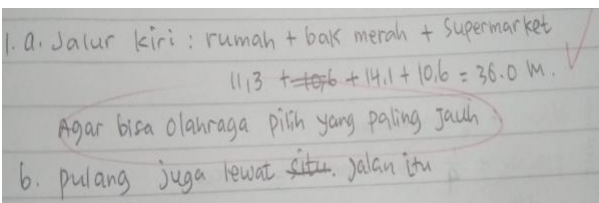 1. a. Jalur kiri : rumah + bak merah + Supermarket
11,3 + 10,6 + 14.1 + 10,6 = 36.0 M.
Agar bisa olahraga pilih yang paling jauh
b. pulang juga lewat situ. jalan itu